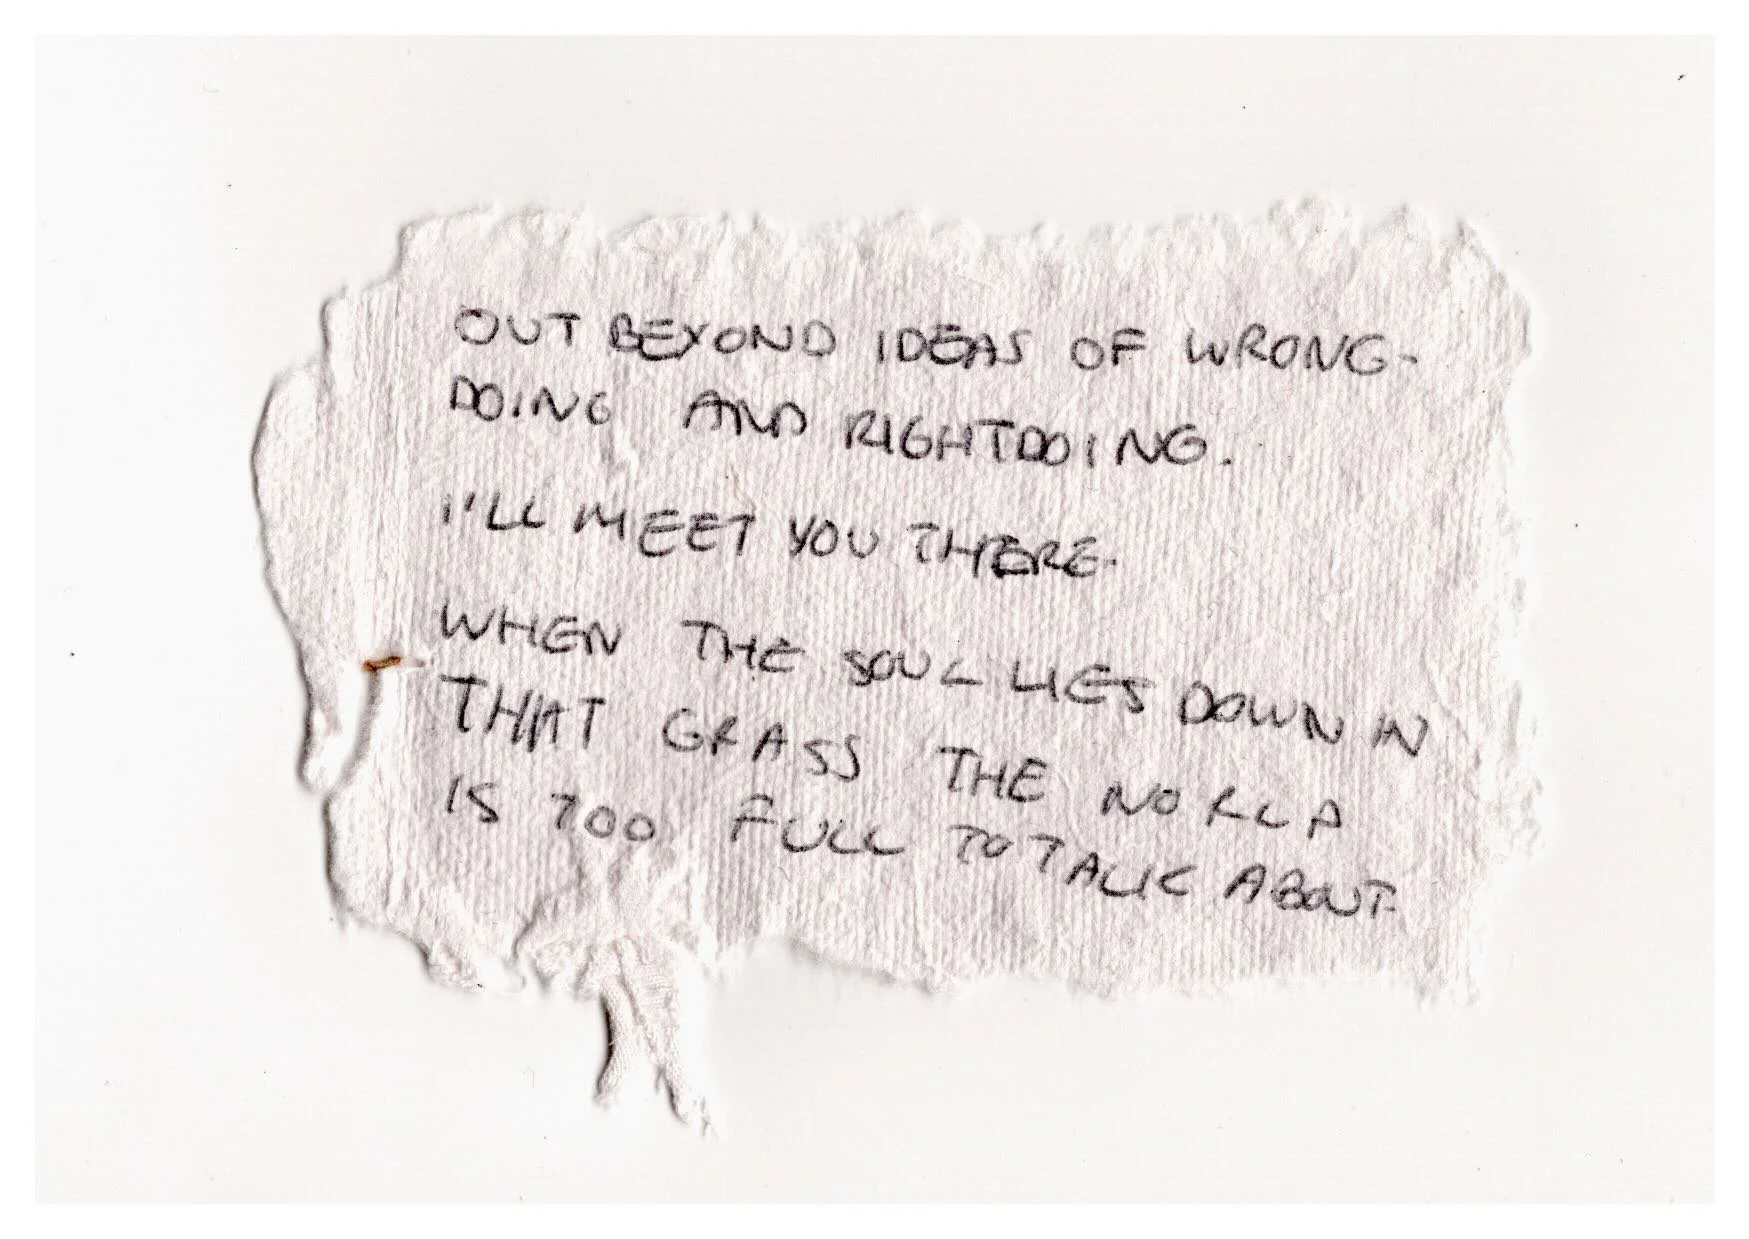 OUT BEYOND IDEAS OF WRONG-
DOING AND RIGHTDOING.
I'LL MEET YOU THERE.
WHEN THE SOUL LIES DOWN IN
THAT GRASS THE WORLD
IS TOO FULL TO TALK ABOUT.